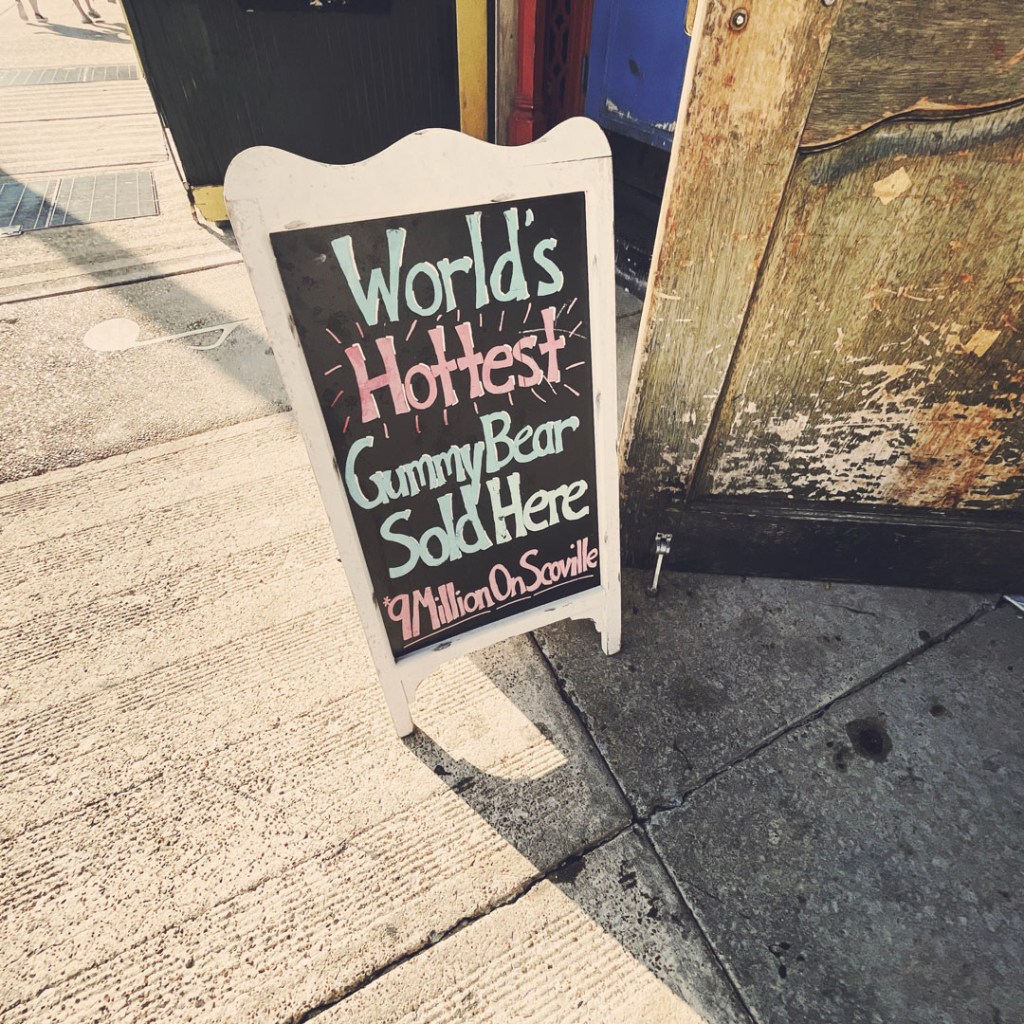 World's
Hottest
Gummy Bear
Sold Here
*9 Million On Scoville